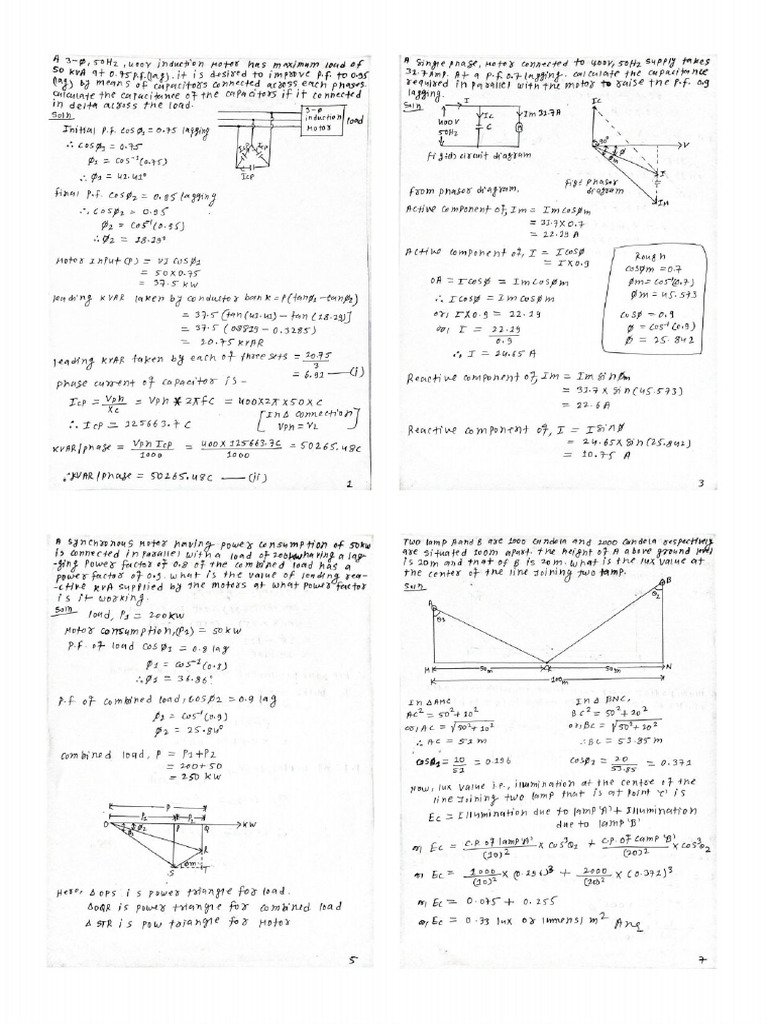 A 3-Ø, 50Hz, 400V induction Motor has maximum load of
50 KVA at 0.75 P.f (lag). it is desired to improve P.f. to 0.95
(lag) by means of capacitors connected across each phases.
calculate the capacitance of the capacitors if it connected
in delta across the load.
Soln
3-Ø
induction
Motor
load
Icp
Icp
Icp
Initial P.f. cosØ1 = 0.75 lagging
∴ cosØ1 = 0.75
Ø1 = cos⁻¹(0.75)
∴ Ø1 = 41.41°
final P.f. cosØ2 = 0.95 lagging
∴ cosØ2 = 0.95
Ø2 = cos⁻¹(0.95)
∴ Ø2 = 18.19°
Motor Input (P) = VI cosØ1
= 50 X 0.75
= 37.5 KW
leading KVAR taken by conductor bank = P(tanØ1 - tanØ2)
= 37.5 [tan(41.41) - tan (18.19)]
= 37.5 (0.8819 - 0.3285)
= 20.75 KVAR
leading KVAR taken by each of three sets = 20.75/3
= 6.91 —(i)
phase current of capacitor is -
Icp = Vph/Xc = Vph * 2πfC = 400 X 2π X 50 X C
∴ Icp = 125663.7 C
[In Δ connection
Vph = VL]
KVAR/phase = Vph Icp/1000 = 400 X 125663.7C/1000 = 50265.48C
∴ KVAR/phase = 50265.48C —(ii)
1
A single phase, Motor connected to 400V, 50Hz supply takes
31.7 Amp. At a P.f. 0.7 lagging. calculate the capacitance
required in parallel with the motor to raise the P.f. 0.9
lagging.
Soln
I
400V
50Hz
Ic
C
Im 31.7A
Fig: circuit diagram
Ic
V
I
IM
Fig: phasor
diagram
from phasor diagram,
Active component of, Im = Im cosØm
= 31.7 X 0.7
= 22.19 A
Active component of, I = I cosØ
= I X 0.9
OA = I cosØ = Im cosØm
∴ I cosØ = Im cosØm
or, I X 0.9 = 22.19
or, I = 22.19/0.9
∴ I = 24.65 A
Rough
cosØm = 0.7
Øm = cos⁻¹(0.7)
Øm = 45.573
cosØ = 0.9
Ø = cos⁻¹(0.9)
Ø = 25.842
Reactive component of, Im = Im sinØm
= 31.7 X sin (45.573)
= 22.6 A
Reactive component of, I = I sinØ
= 24.65 X sin (25.842)
= 10.75 A
3
A synchronous Motor having power consumption of 50KW
is connected in parallel with a load of 200KW having a lag-
-ging power factor of 0.8 of the combined load has a
power factor of 0.9. what is the value of leading rea-
-ctive KVA supplied by the motors at what power factor
is it working.
Soln
load, P1 = 200KW
Motor consumption, (P2) = 50 KW
P.f. of load cosØ1 = 0.8 lag
Ø1 = cos⁻¹(0.8)
∴ Ø1 = 36.86°
P.f of combined load, cosØ2 = 0.9 lag
Ø2 = cos⁻¹(0.9)
Ø2 = 25.84°
combined load, P = P1 + P2
= 200 + 50
= 250 KW
P
P1
P2
O
P
Q
KW
Ø1
Ø2
R
S
Øm
T
Here, Δ OPS is power triangle for load.
Δ OQR is power triangle for combined load
Δ STR is pow triangle for Motor
5
Two lamp A and B are 1000 candela and 2000 candela respectively
are situated 100m apart. the height of A above ground level
is 10m and that of B is 20m. what is the lux value at
the center of the line joining two lamp.
Soln
A
θ1
B
θ2
M
50m
C
50m
N
100m
In Δ AMC
AC² = 50² + 10²
or, AC = √50² + 10²
∴ AC = 51 m
cosØ1 = 10/51 = 0.196
In Δ BNC,
BC² = 50² + 20²
or, BC = √50² + 20²
∴ BC = 53.85 m
cosØ2 = 20/53.85 = 0.371
Now, lux value i.e., illumination at the centre of the
line joining two lamp that is at point 'c' is
Ec = Illumination due to lamp 'A' + Illumination
due to lamp 'B'
or, Ec = C.P. of lamp 'A'/(10)² X cos³Ø1 + C.P. of Lamp 'B'/(20)² X cos³Ø2
or, Ec = 1000/(10)² X (0.196)³ + 2000/(20)² X (0.371)³
or, Ec = 0.075 + 0.255
or, Ec = 0.33 lux or lumens/m² Ans
7